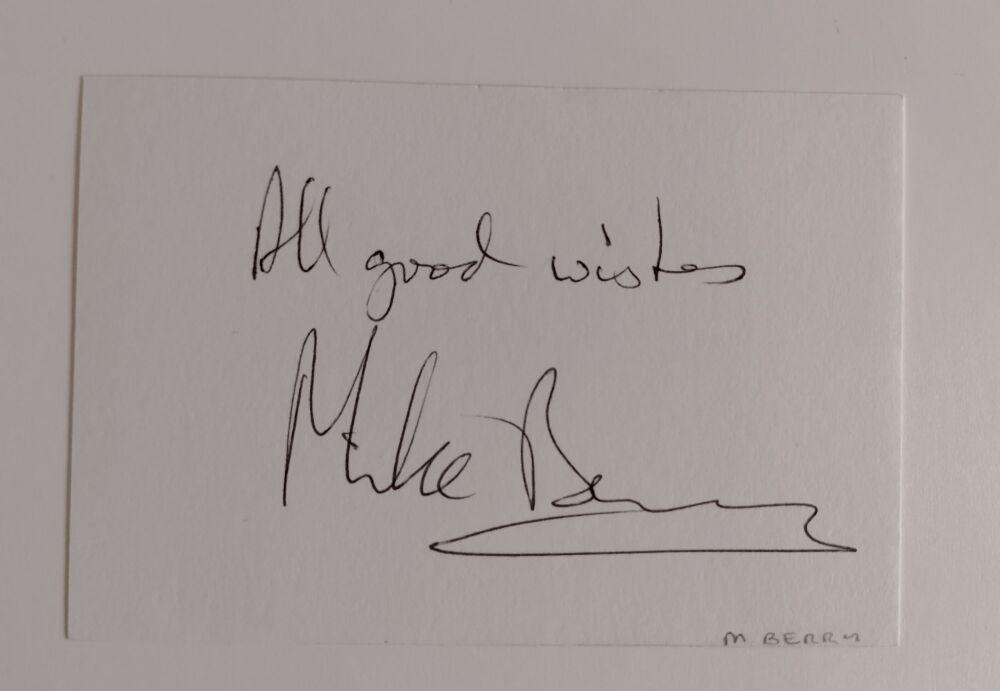 All good wishes
Mike Berry
M BERRY